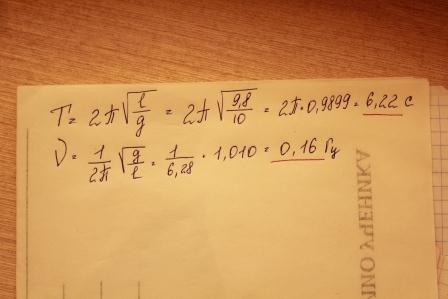 T = 2π√(l/g) = 2π√(9,8/10) = 2π·0,9899 = 6,22 с
ν = 1/2π √(g/l) = 1/6,28 · 1,010 = 0,16 Гц
ПО УЧЕНИКА